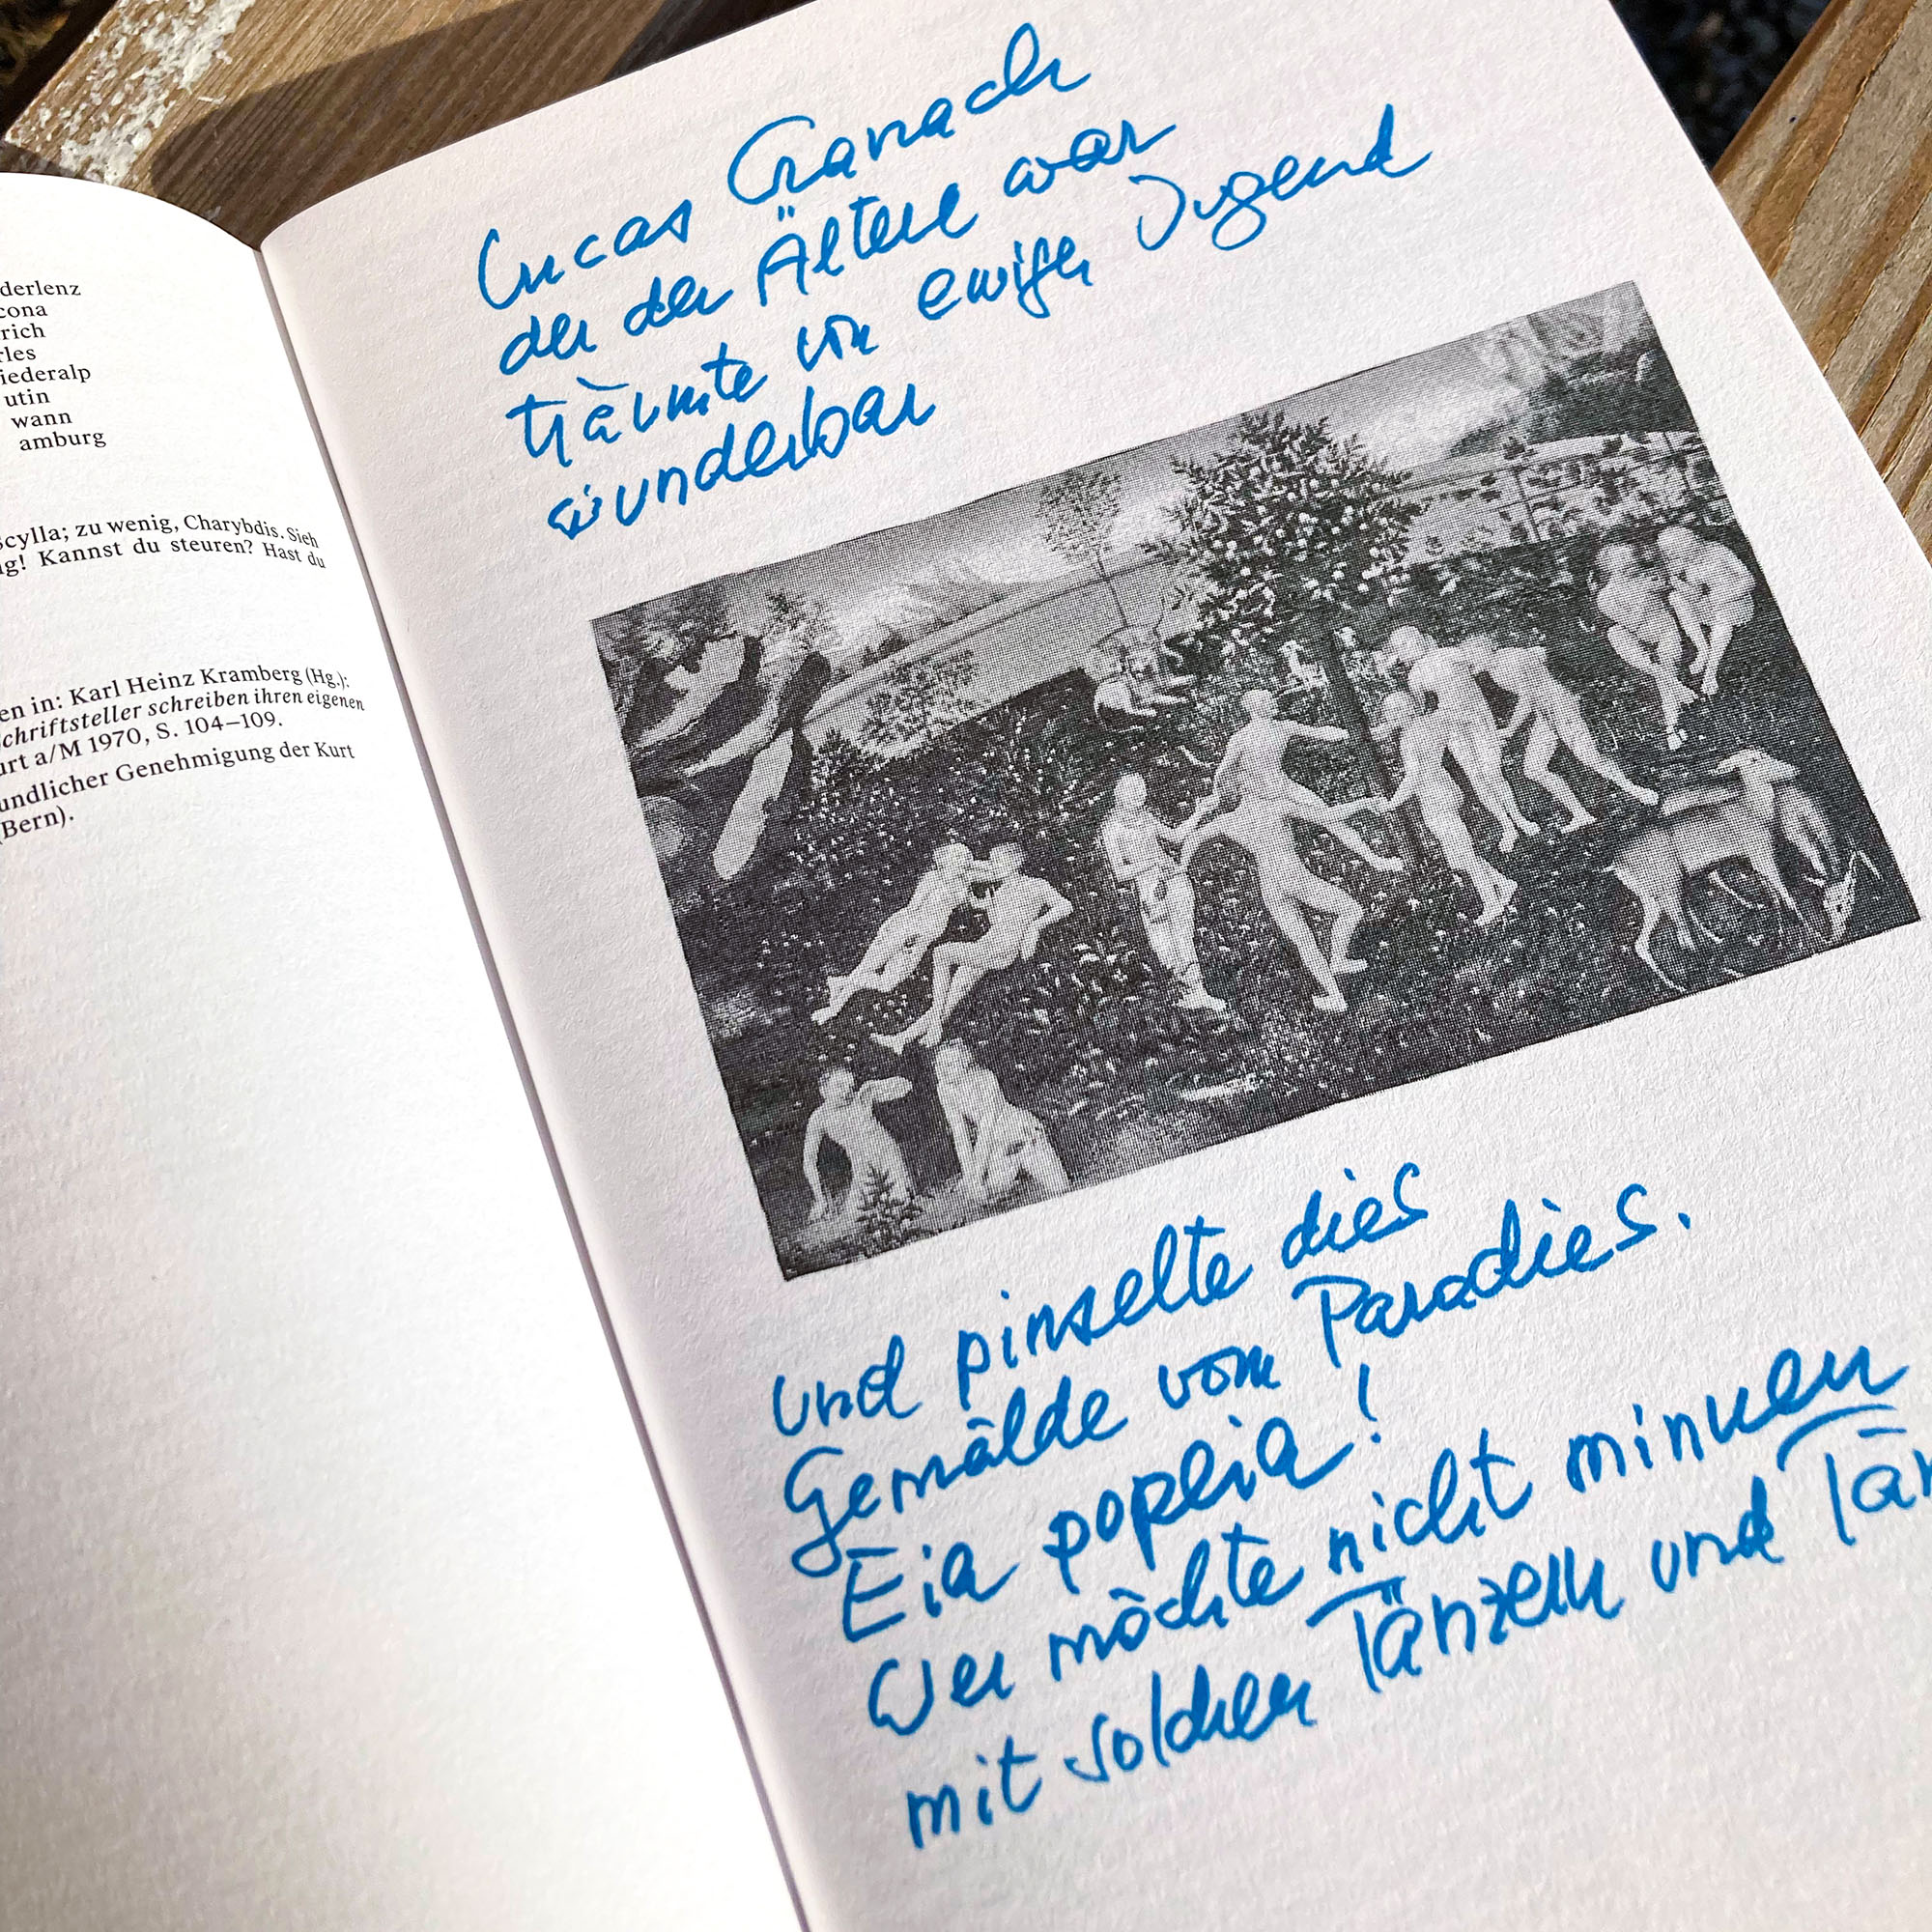 derlenz
cona
rich
rles
iederalp
utin
wann
amburg
Scylla; zu wenig, Charybdis. Sieh
ng! Kannst du steuren? Hast du
en in: Karl Heinz Kramberg (Hg.):
chriftsteller schreiben ihren eigenen
urt a/M 1970, S. 104–109.
undlicher Genehmigung der Kurt
(Bern).
Lucas Cranach
der der Ältere war
träumte von ewiger Jugend
wunderbar
und pinselte dies
Gemälde vom Paradies.
Eia popeia!
Wer möchte nicht minnen
mit solchen Tänzern und Tän